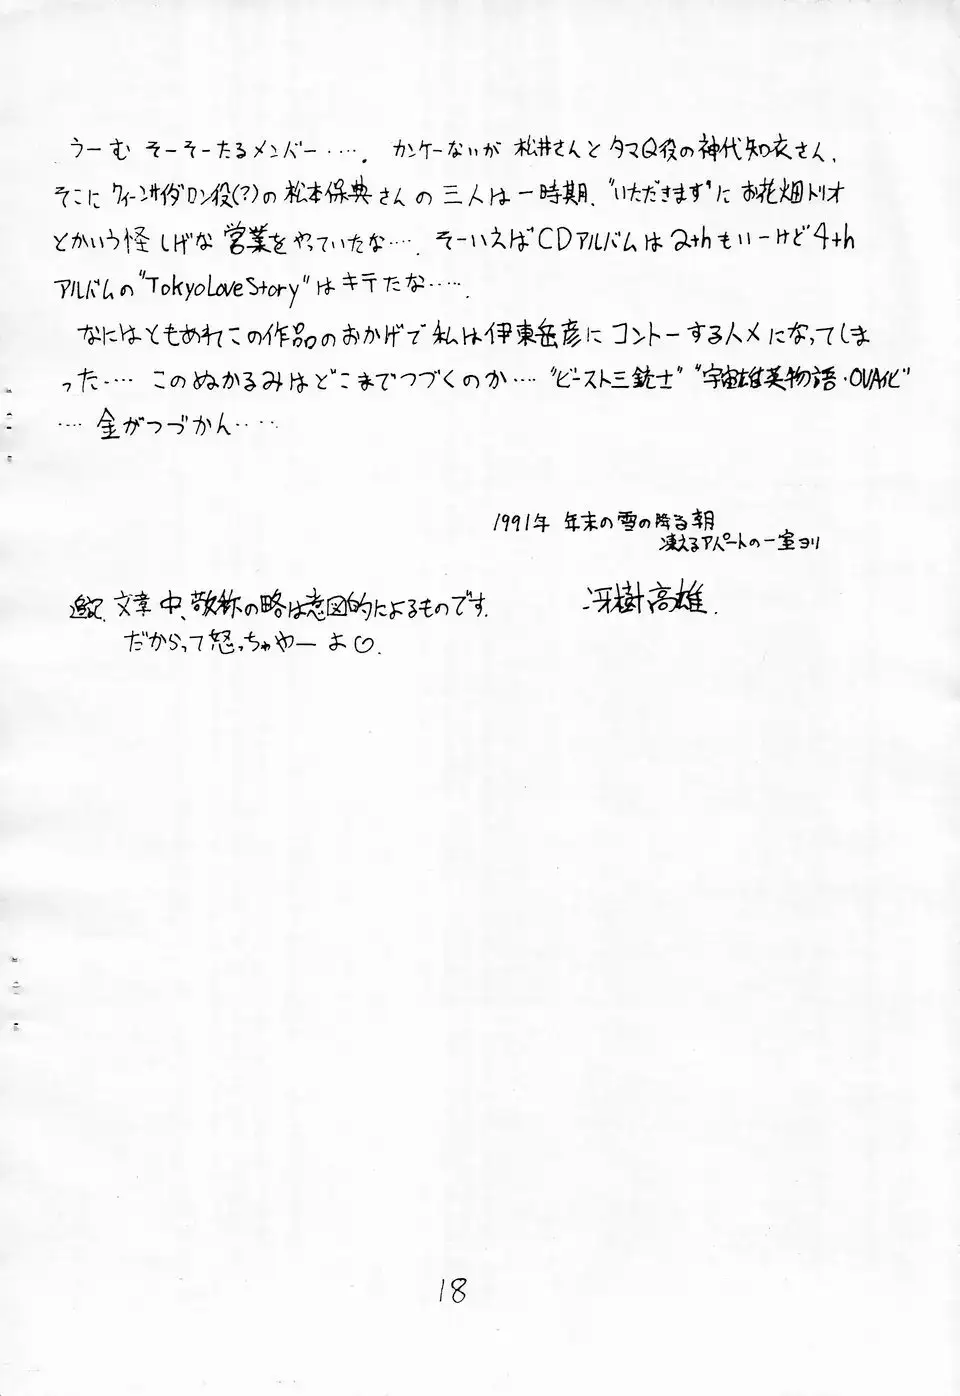 うーむ そーそーたるメンバー‥‥. カンケーないが 松井さんと タマQ役の神代知衣さん、
そこに ウィーンサイダロン役(?)の松本保典さんの三人は一時期、"いただきます"に お花畑トリオ
とかいう怪しげな営業をやっていたな‥‥. そーいえばCDアルバムは2thもいーけど4th
アルバムの"TokyoLoveStory"はキテたな‥‥.
なにはともあれこの作品のおかげで私は伊東岳彦にコントーする人メになってしま
った‥‥ このぬかるみはどこまでつづくのか‥‥ "ビースト三銃士" "宇宙雄英物語・OVA化"
‥‥ 金がつづかん‥‥
1991年 年末の雪の降る朝
凍えるアパートの一室ヨリ
冴樹高雄.
追記. 文章中、敬称の略は意図的によるものです.
だからって怒っちゃやーよ♡.
18